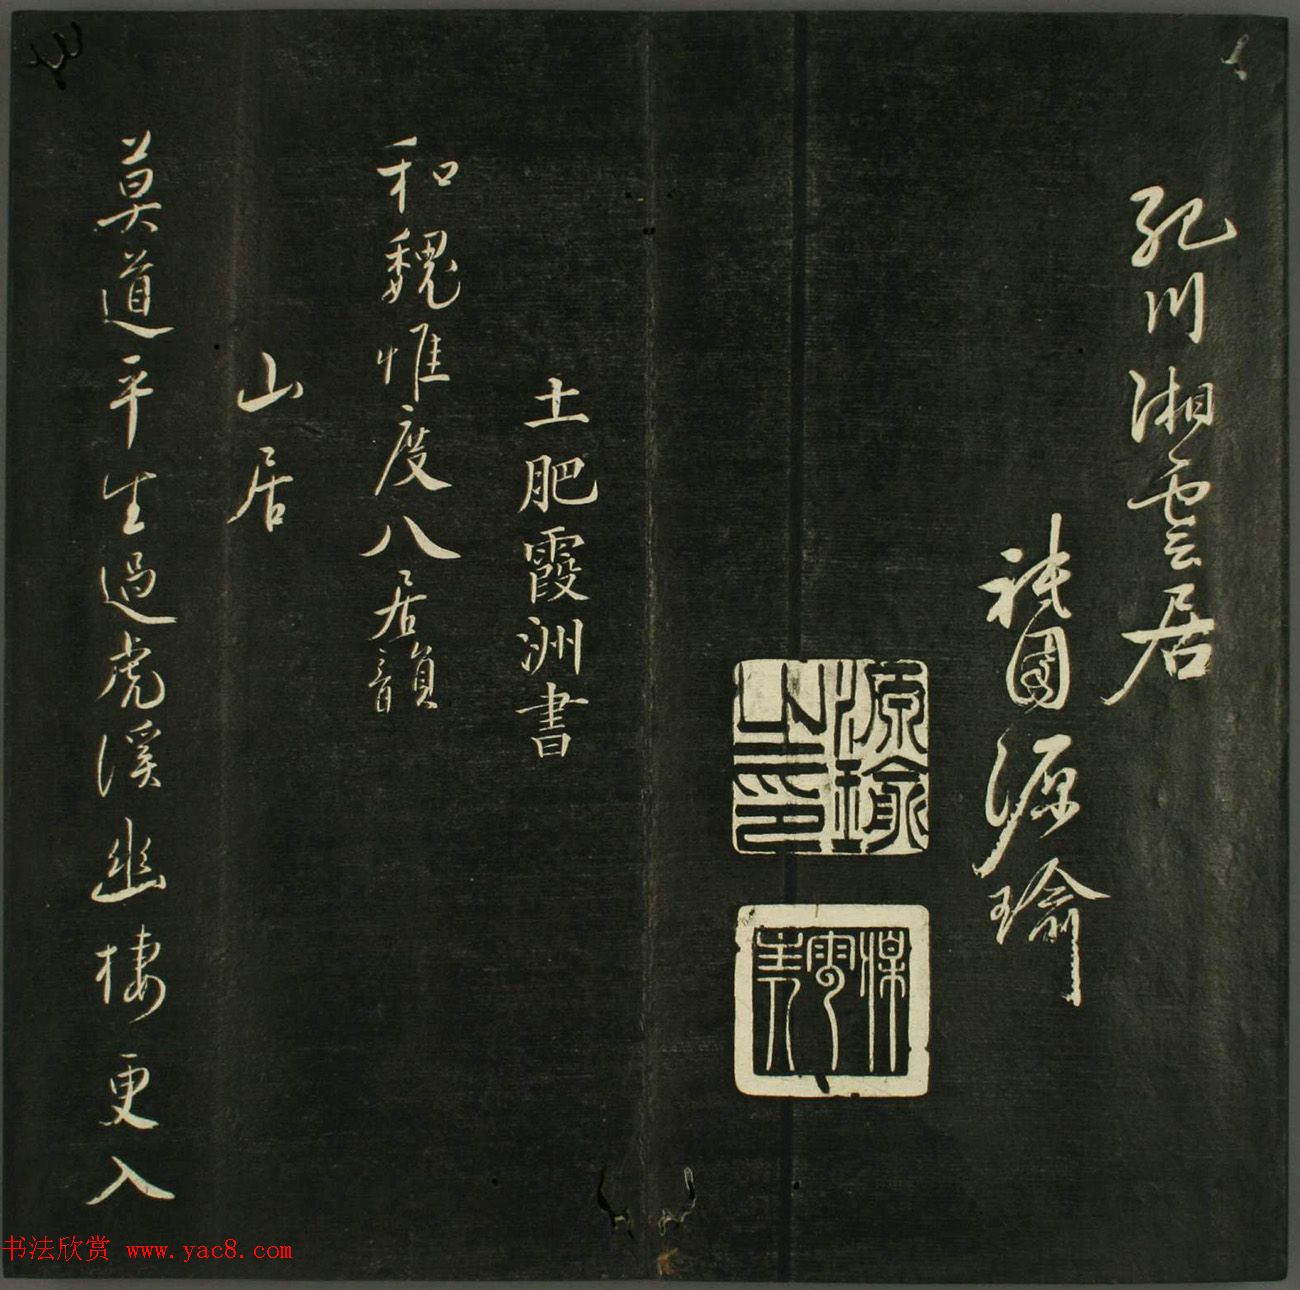 紀川湘雲居
祇園源瑜
源瑜之印
土肥霞洲書
和魏惟度八居韻
山居
莫道平生過虎溪幽棲更入
书法欣赏 www.yac8.com